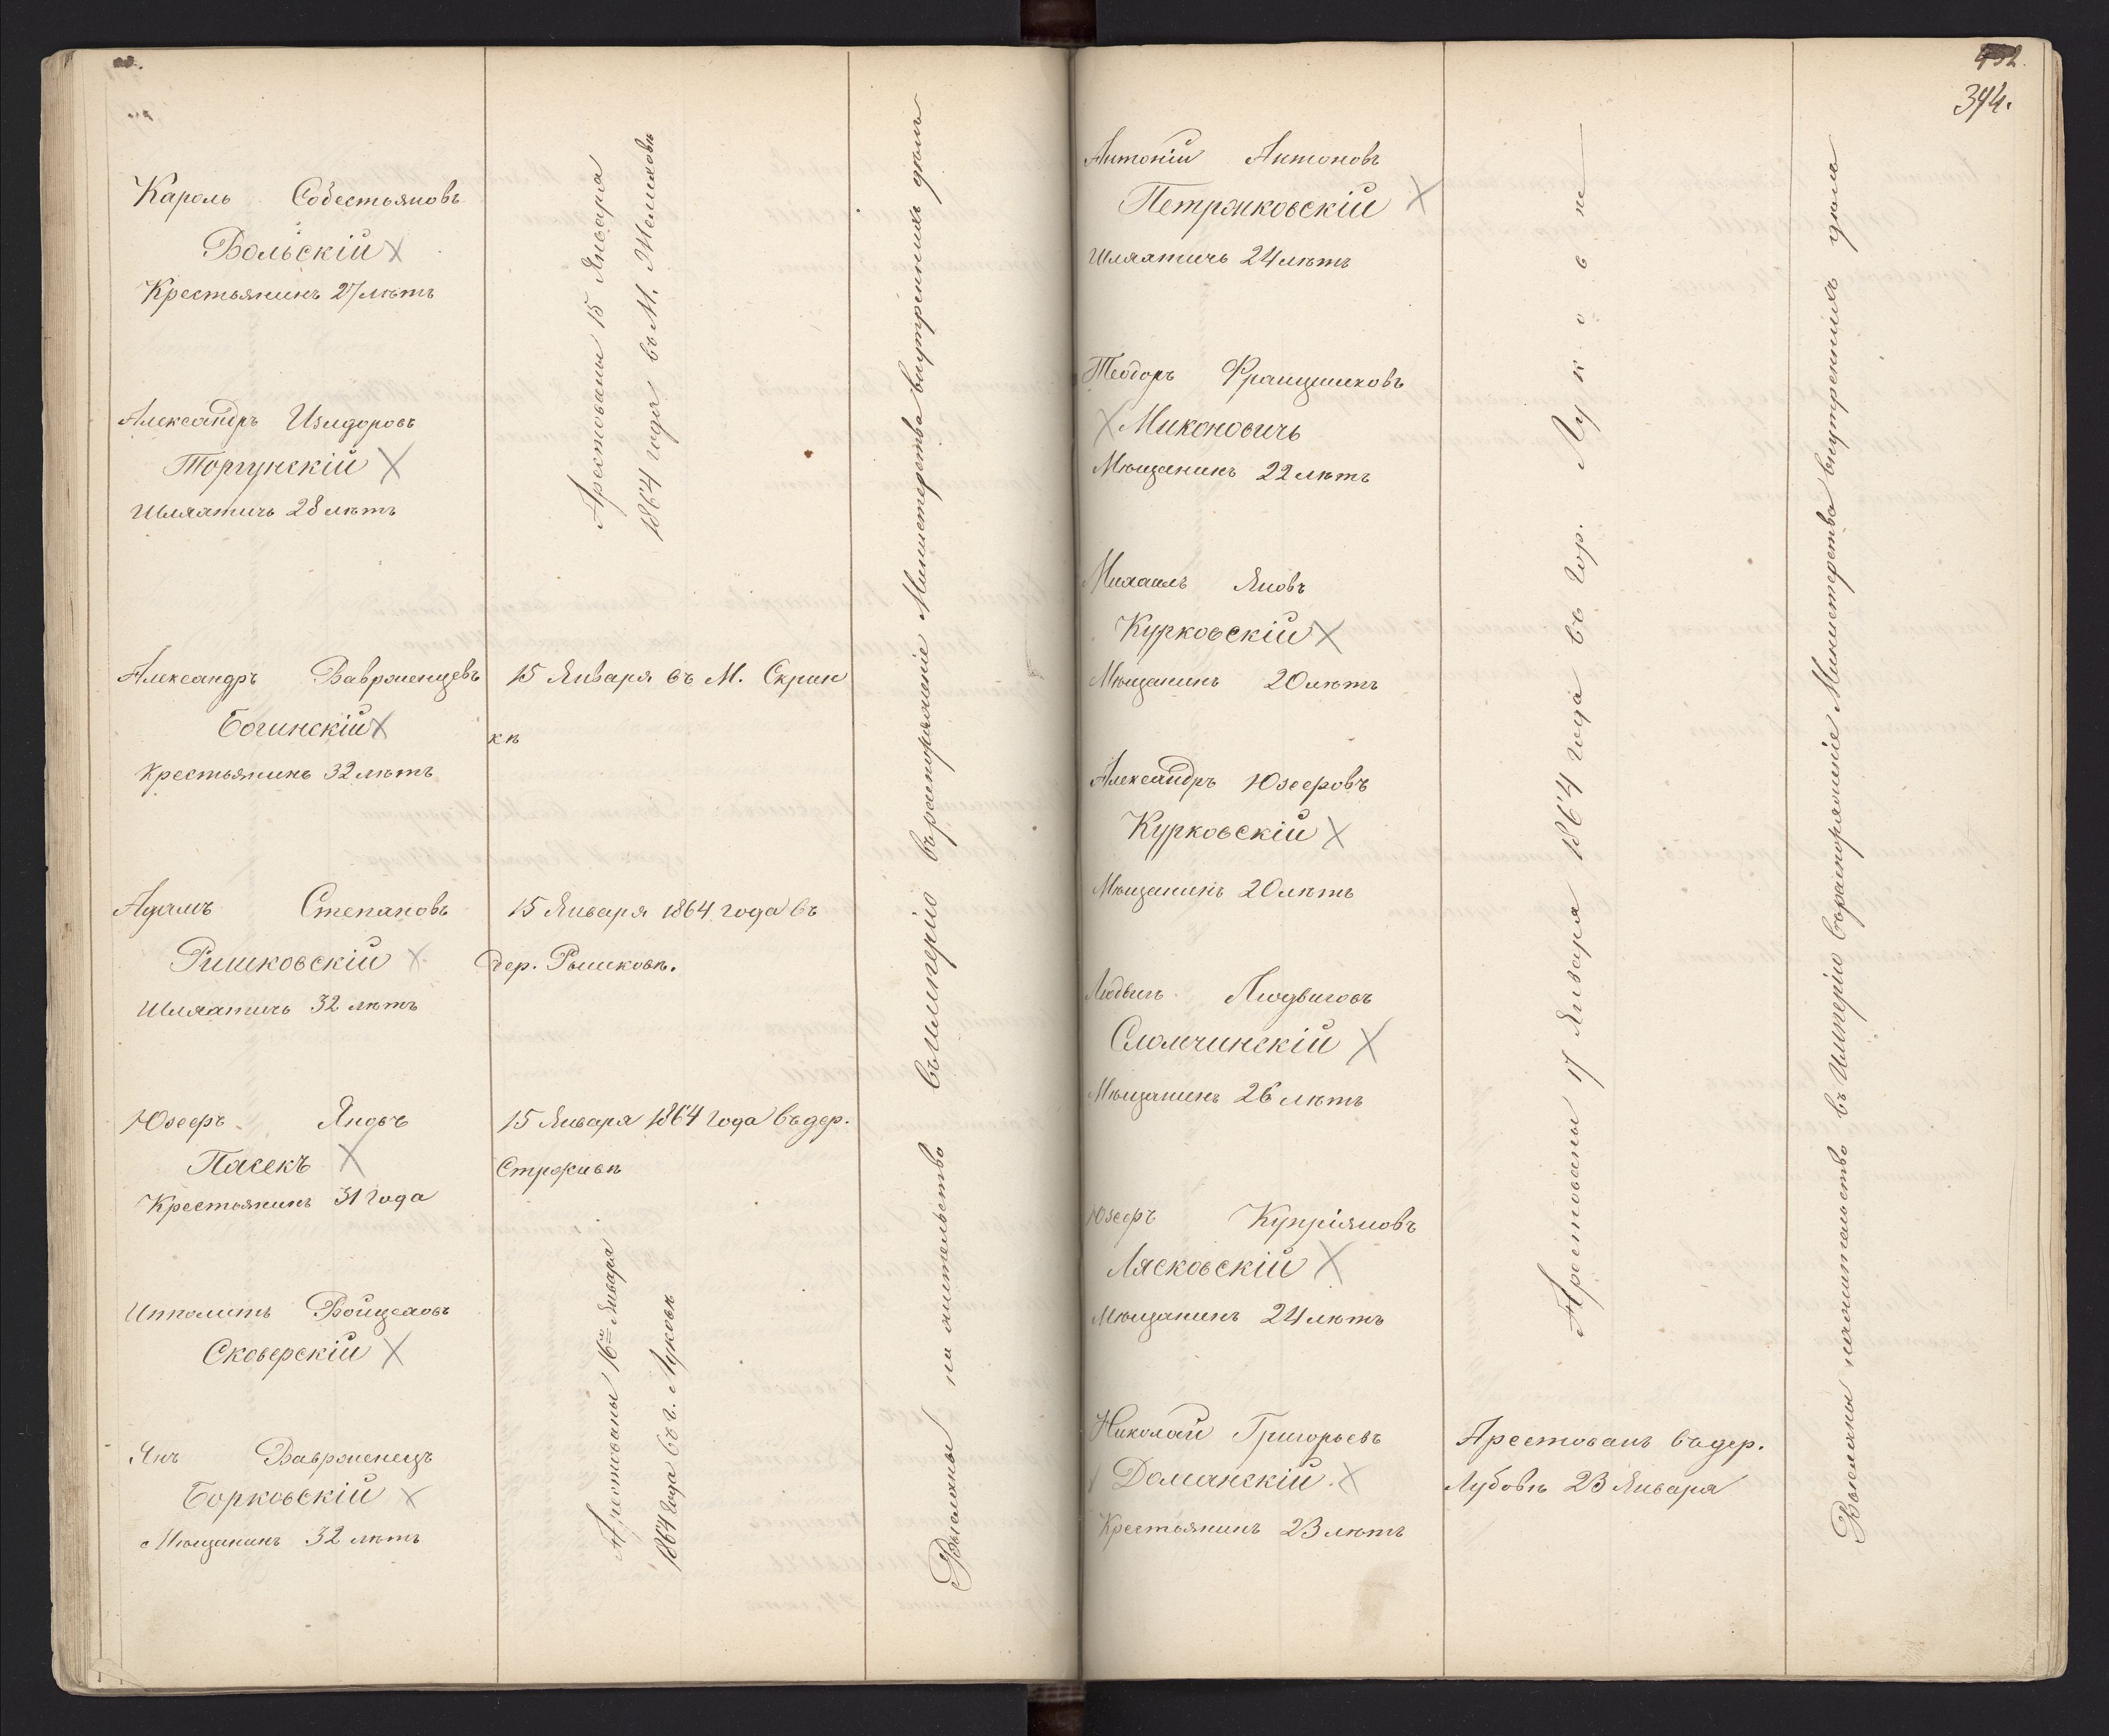 Кароль Собестьяновъ
Вольскій
Крестьянинъ 27 лѣтъ
Александръ Изидоровъ
Торгунскій
Шляхтичь 28 лѣтъ
Арестованы 15 Января
1864 года въ М. Желиховѣ
Александръ Ваврженцевъ
Богинскій
Крестьянинъ 32 лѣтъ
15 Января въ М. Скрин
кѣ
Адамъ Степановъ
Ришковскій
Шляхтичь 32 лѣтъ
15 Января 1864 года въ
дер. Рышковѣ.
Юзефъ Яновъ
Пасекъ
Крестьянинъ 31 года
15 Января 1864 года въ дер.
Строживѣ
Ипполитъ Войцеховъ
Сковерскій
Янъ Ваврженецъ
Борковскій
Мѣщанинъ 32 лѣтъ
Арестованы 16го Января
1864 года въ г. Луковѣ
Высланы на жительство въ Имперію въ распоряженіе Министерства внутреннихъ дѣлъ
394.
Антоній Антоновъ
Петрожковскій
Шляхтичь 24 лѣтъ
Теодоръ Францишковъ
Миконовичь
Мѣщанинъ 22 лѣтъ
Михаилъ Яновъ
Курковскій
Мѣщанинъ 20 лѣтъ
Александръ Юзефовъ
Курковскій
Мѣщанинъ 20 лѣтъ
Людвигъ Людвиговъ
Сломчинскій
Мѣщанинъ 26 лѣтъ
Юзефъ Купріяновъ
Лясковскій
Мѣщанинъ 24 лѣтъ
Арестованы 17 Января 1864 года въ гор. Луковѣ
Николай Григорьевъ
Доманскій
Крестьянинъ 23 лѣтъ
Арестованъ въ дер.
Лубовѣ 23 Января
Высланы на жительство въ Имперію въ распоряженіе Министерства внутреннихъ дѣлъ